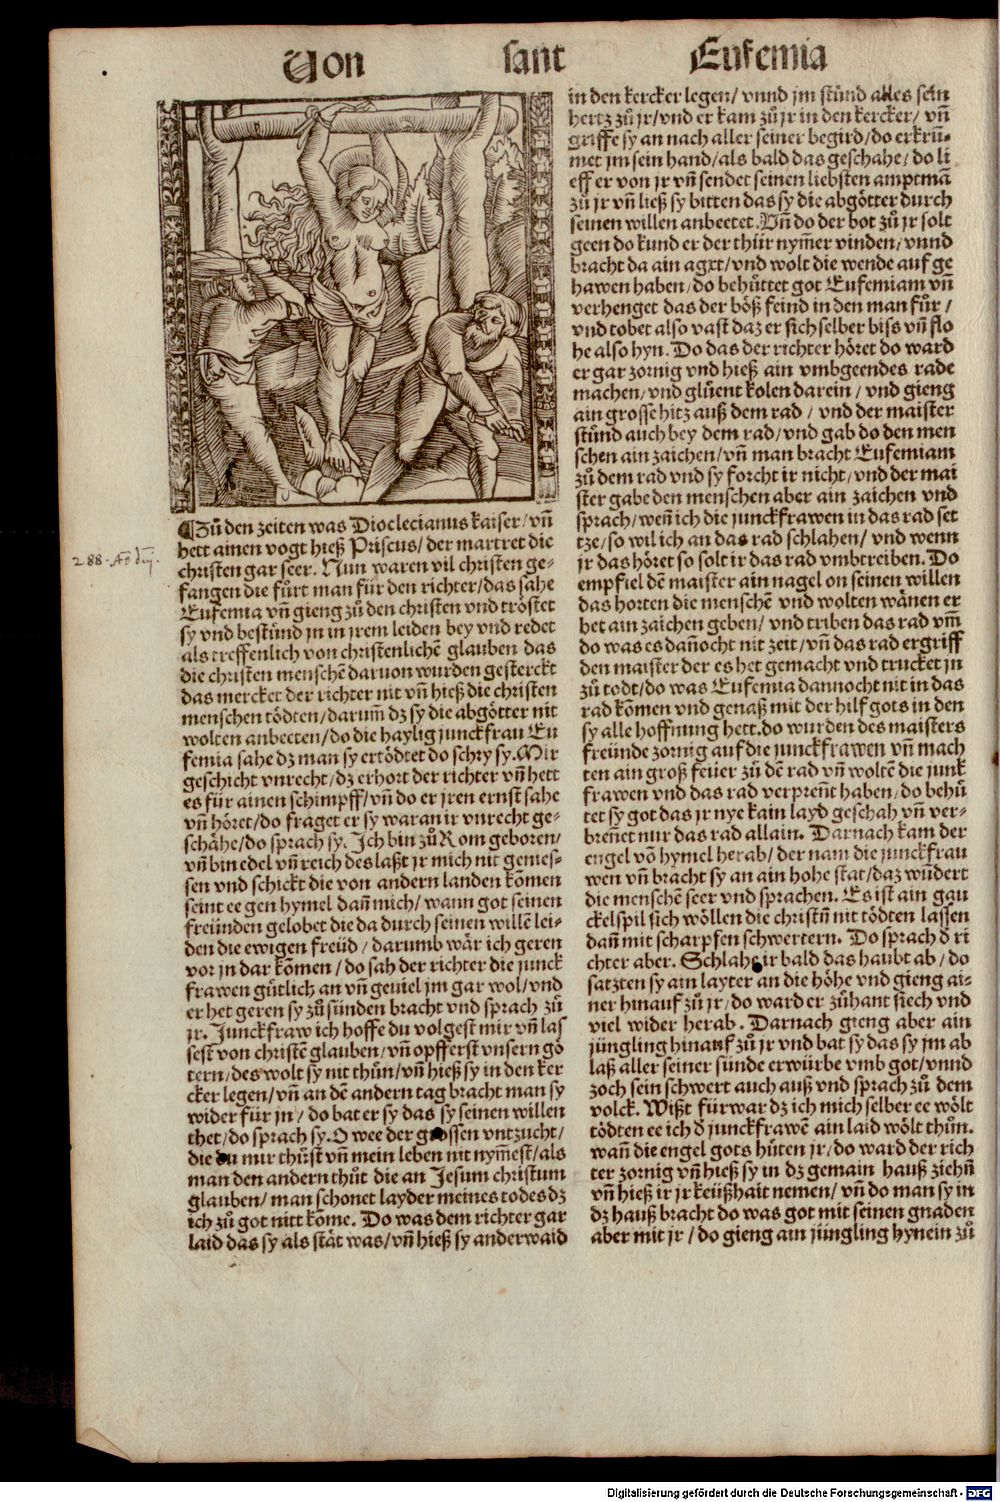 Von sant Eufemia
¶Zů den zeiten was Dioclecianus kaiser/ vn̄
hett ainen vogt hieß Priscus/ der martret die
christen gar seer. Nun waren vil christen ge-
fangen die fůrt man für den richter/ das sahe
Eufemia vn̄ gieng zů den christen vnd tröstet
sy vnd bestůnd jn in jrem leiden bey vnd redet
als treffenlich von christenlichē glauben das
die christen menschē daruon wurden gesterckt
das mercket der richter nit vn̄ hieß die christen
menschen tödten/ darum̄ dz sy die abgötter nit
wolten anbeeten/ do die haylig junckfrau Eu
femia sahe dz man sy ertödtet do schry sy. Mir
geschicht vnrecht/ dz erhort der richter vn̄ hett
es für ainen schimpff/ vn̄ do er jren ernst sahe
vn̄ höret/ do fraget er sy waran ir vnrecht ge-
schähe/ do sprach sy. Ich bin zů Rom geboren/
vn̄ bin edel vn̄ reich des laßt jr mich nit genies-
sen vnd schickt die von andern landen kōmen
seint ee gen hymel dan̄ mich/ wann got seinen
freünden gelobet die da durch seinen willē lei-
den die ewigen freüd/ darumb wär ich geren
vor jn dar kōmen/ do sah der richter die junck
frawen gütlich an vn̄ geuiel jm gar wol/ vnd
er het geren sy zů sünden bracht vnd sprach zů
jr. Junckfraw ich hoffe du volgest mir vn̄ las
sest von christē glauben/ vn̄ opfferst vnsern gö
tern/ des wolt sy nit thůn/ vn̄ hieß sy in den ker
cker legen/ vn̄ an dē andern tag bracht man sy
wider für jn/ do bat er sy das sy seinen willen
thet/ do sprach sy. O wee der grossen vntzucht/
die du mir thůst vn̄ mein leben nit nym̄est/ als
man den andern thůt die an Jesum christum
glauben/ man schonet layder meines todes dz
ich zů got nitt kōme. Do was dem richter gar
laid das sy als stät was/ vn̄ hieß sy anderwaid
288. Aō dni.
in den kercker legen/ vnnd jm stůnd alles sein
hertz zů jr/ vnd er kam zů jr in den kercker/ vn̄
griffe sy an nach aller seiner begird/ do erkrū-
met jm sein hand/ als bald das geschahe/ do li
eff er von jr vn̄ sendet seinen liebsten amptmā
zů jr vn̄ ließ sy bitten das sy die abgötter durch
seinen willen anbeetet. Vn̄ do der bot zů jr solt
geen do kund er der thür nym̄er vinden/ vnnd
bracht da ain agxt/ vnd wolt die wende auf ge
hawen haben/ do behüttet got Eufemiam vn̄
verhenget das der böß feind in den man fůr/
vnd tobet also vast daz er sich selber biss vn̄ flo
he also hyn. Do das der richter höret do ward
er gar zornig vnd hieß ain vmbgeendes rade
machen/ vnd glüent kolen darein/ vnd gieng
ain grosse hitz auß dem rad/ vnd der maister
stůnd auch bey dem rad/ vnd gab do den men
schen ain zaichen/ vn̄ man bracht Eufemiam
zů dem rad vnd sy forcht ir nicht/ vnd der mai
ster gabe den menschen aber ain zaichen vnd
sprach/ wen̄ ich die junckfrawen in das rad set
tze/ so wil ich an das rad schlahen/ vnd wenn
jr das höret so solt ir das rad vmbtreiben. Do
empfiel dē maister ain nagel on seinen willen
das horten die menschē vnd wolten wänen er
het ain zaichen geben/ vnd triben das rad vm̄
do was es dan̄ocht nit zeit/ vn̄ das rad ergriff
den maister der es het gemacht vnd trucket jn
zů todt/ do was Eufemia dannocht nit in das
rad kōmen vnd genaß mit der hilf gots in den
sy alle hoffnung hett. do wurden des maisters
freünde zornig auf die junckfrawen vn̄ mach
ten ain groß feüer zů dē rad vn̄ woltē die junk
frawen vnd das rad verpren̄t haben/ do behů
tet sy got das jr nye kain layd geschah vn̄ ver-
bren̄et nur das rad allain. Darnach kam der
engel vō hymel herab/ der nam die junckfrau
wen vn̄ bracht sy an ain hohe stat/ daz wūdert
die menschē seer vnd sprachen. Es ist ain gau
ckelspil sich wöllen die christn̄ nit tödten lassen
dan̄ mit scharpfen schwertern. Do sprach d̄ ri
chter aber. Schlahe ir bald das haubt ab/ do
satzten sy ain layter an die höhe vnd gieng ai-
ner hinauf zů jr/ do ward er zůhant siech vnd
viel wider herab. Darnach gieng aber ain
jüngling hinauf zů jr vnd bat sy das sy jm ab
laß aller seiner sünde erwürbe vmb got/ vnnd
zoch sein schwert auch auß vnd sprach zů dem
volck. Wißt fürwar dz ich mich selber ee wölt
tödten ee ich d̄ junckfrawē ain laid wölt thůn.
wan̄ die engel gots hüten jr/ do ward der rich
ter zornig vn̄ hieß sy in dz gemain hauß ziehn̄
vn̄ hieß ir jr keüßhait nemen/ vn̄ do man sy in
dz hauß bracht do was got mit seinen gnaden
aber mit jr/ do gieng ain jüngling hynein zů
Digitalisierung gefördert durch die Deutsche Forschungsgemeinschaft - DFG